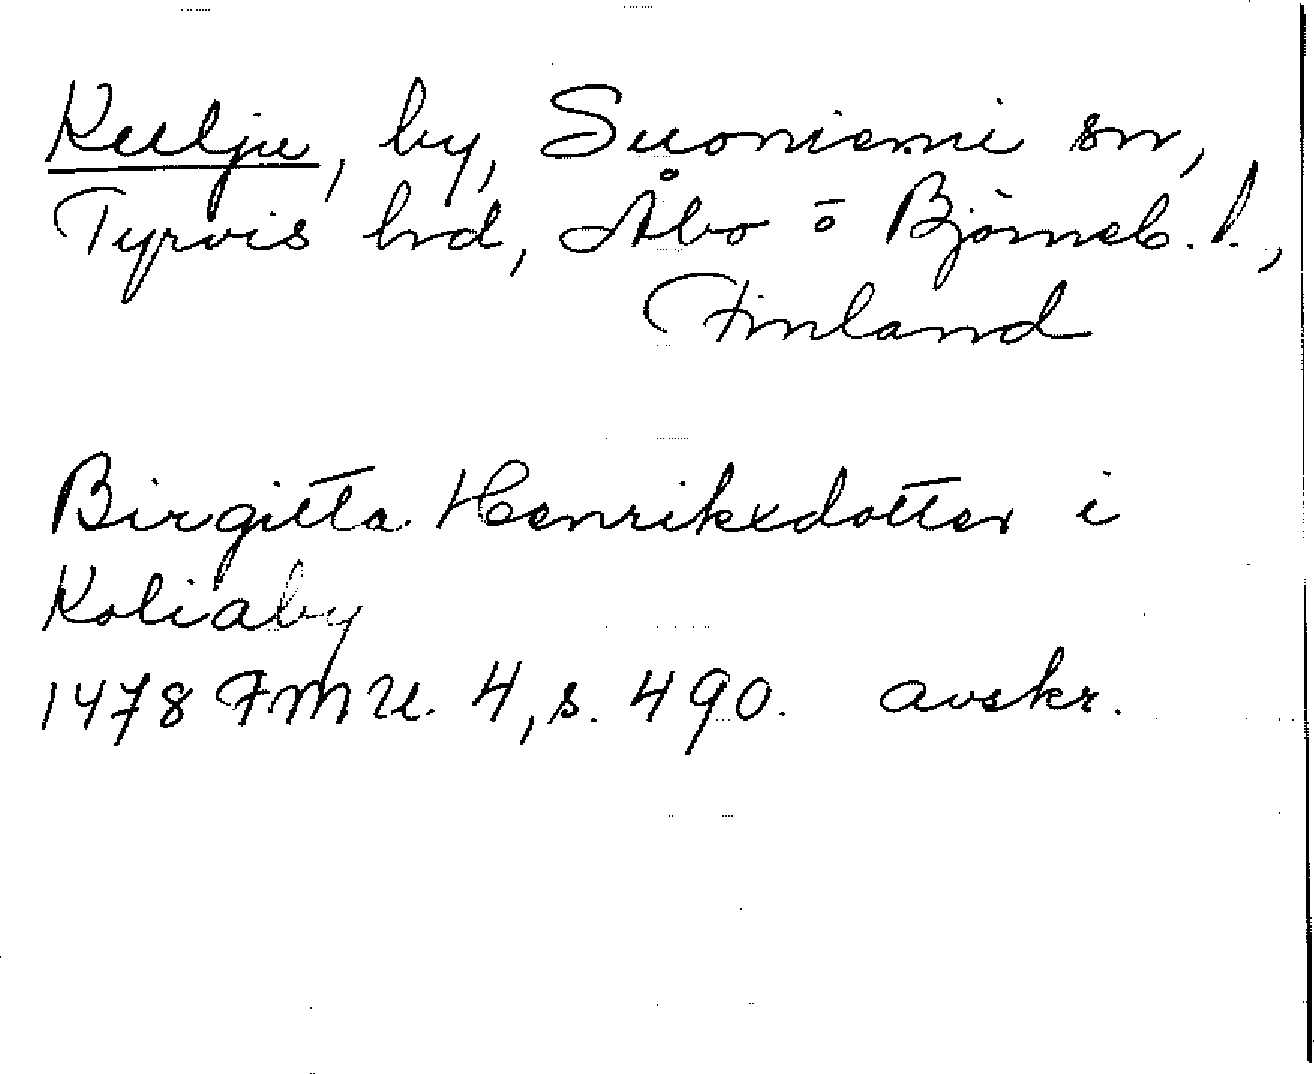 Kulju, by, Suoniemi sn,
Tyrvis hd, Åbo o Björneb. l.,
Finland
Birgitta Henrikxdotter i
Koliaby
1478 FMU. 4, s. 490. avskr.